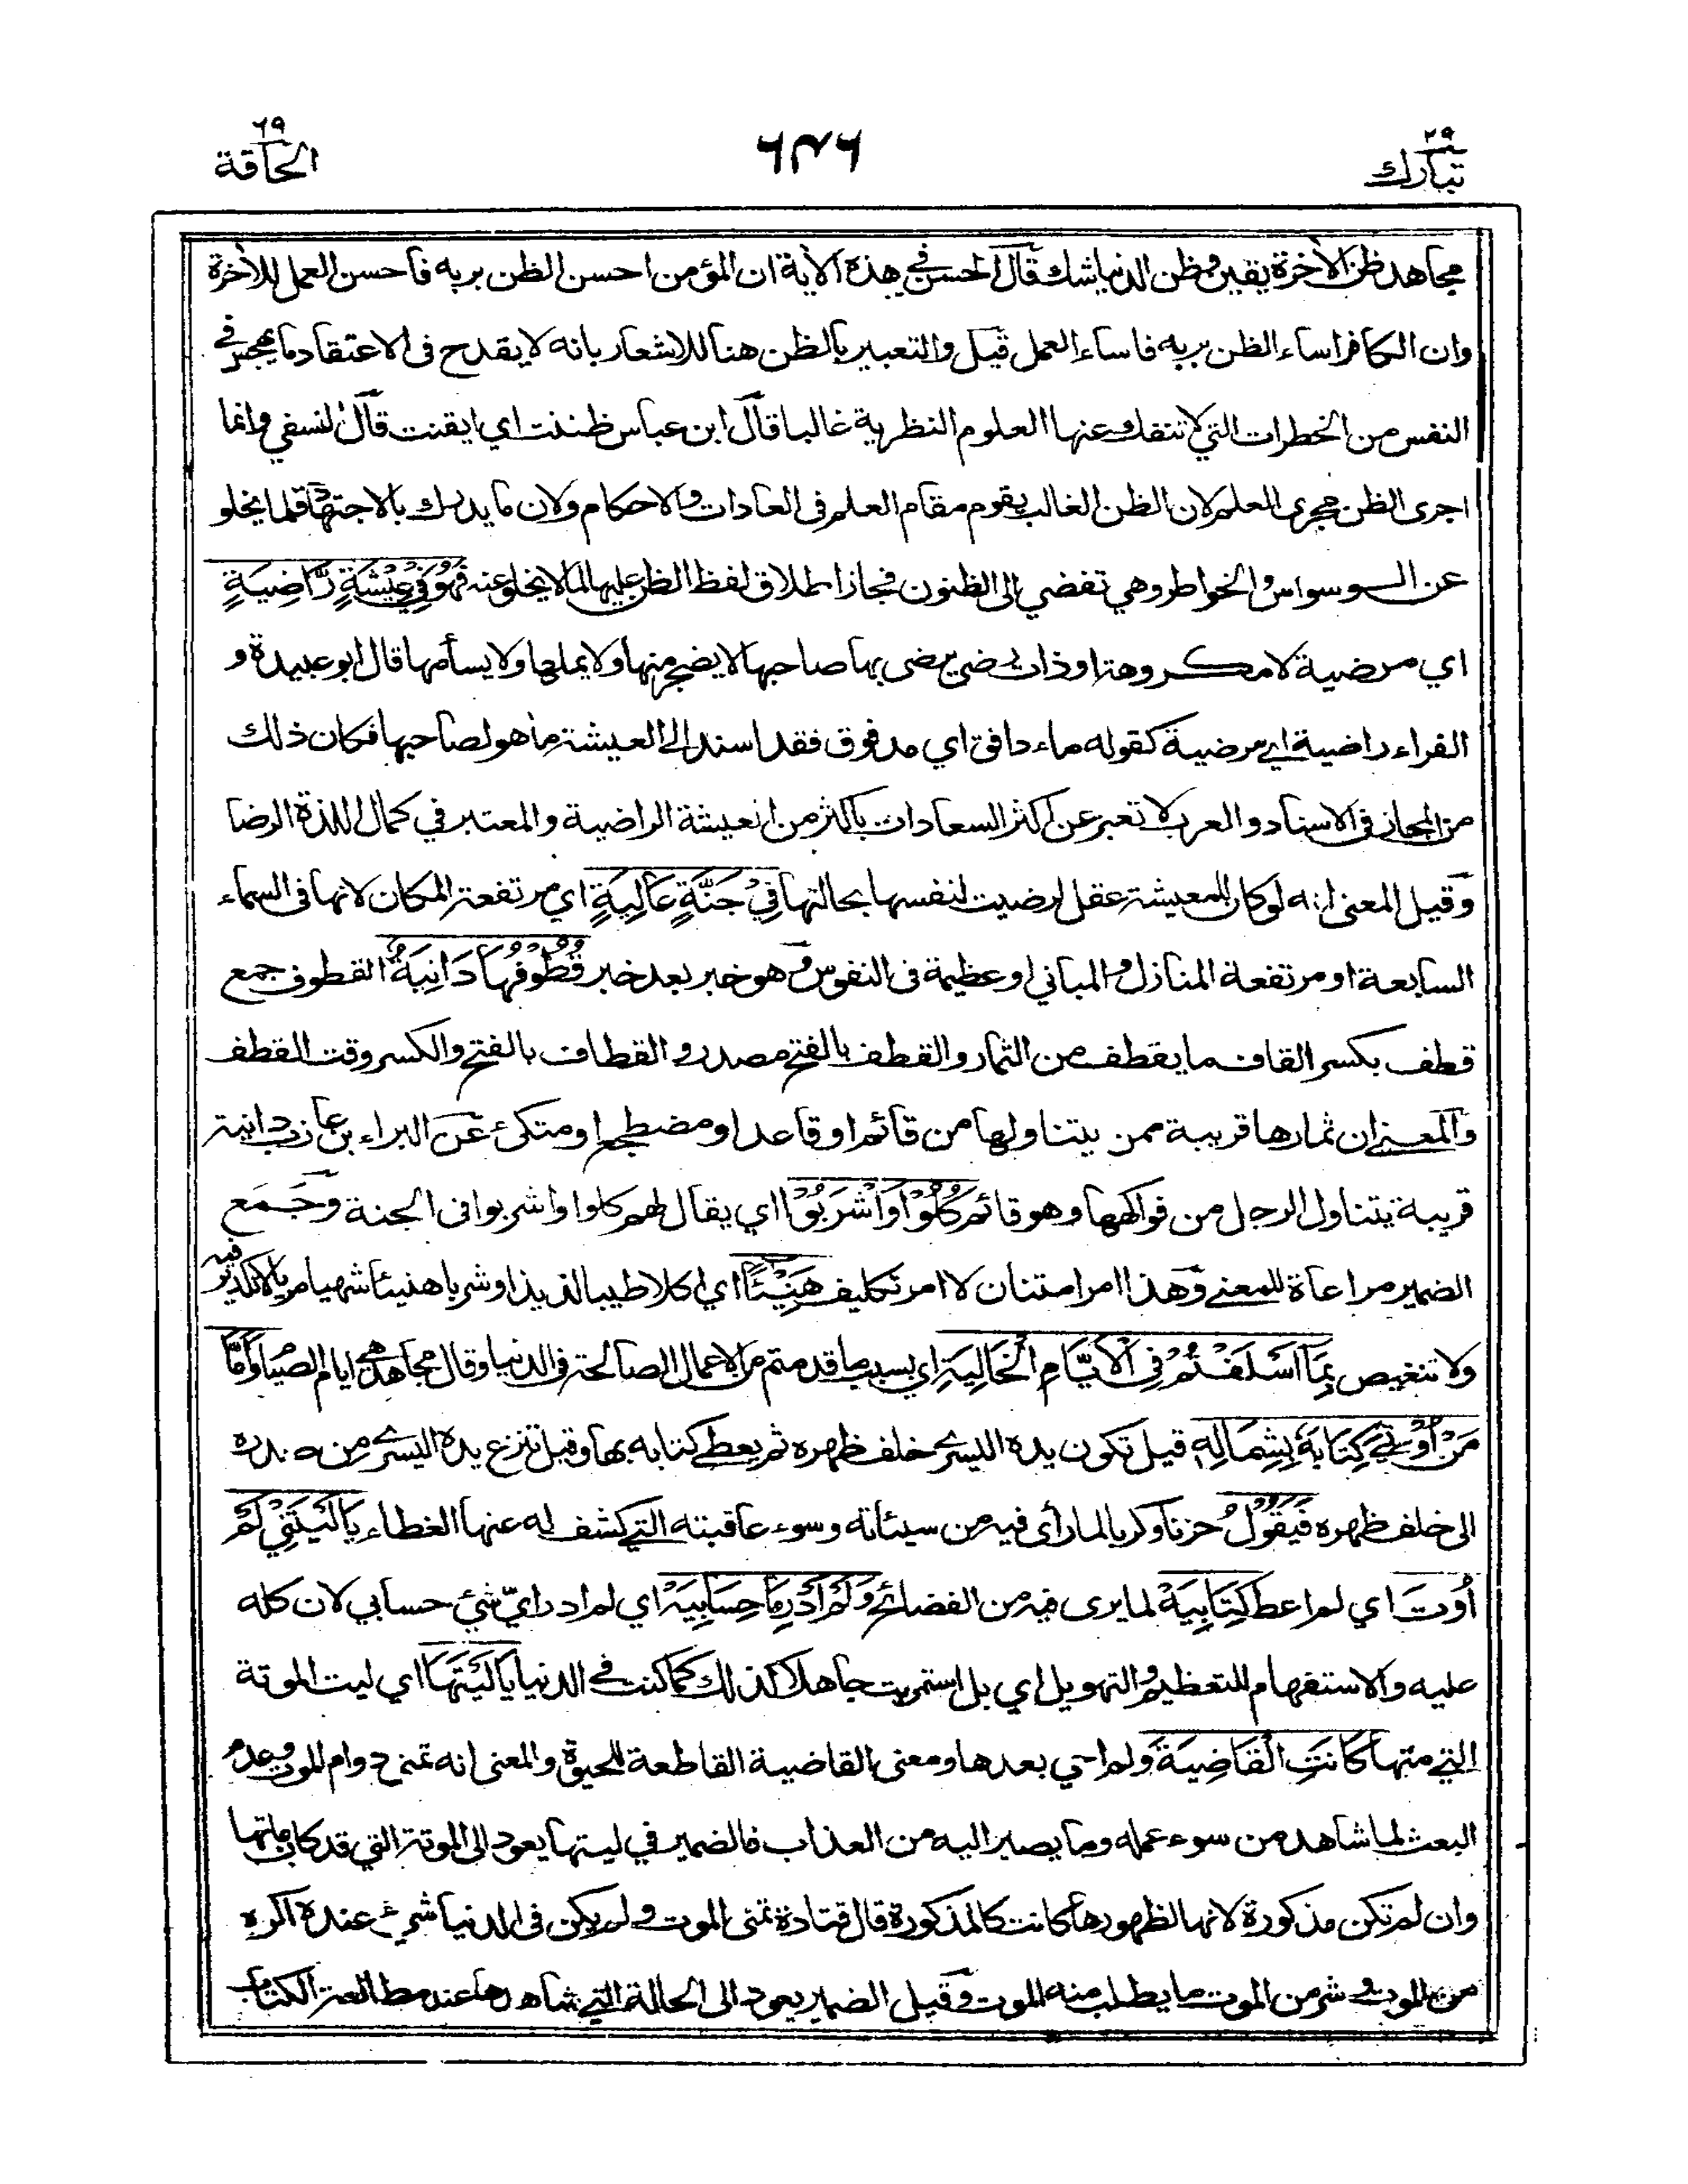 ٢٩
تبارك
٦٨٦
٦٩
الحاقة
مجاهد ظن الأخرة يقين وظن الدنيا شك قال الحسن في هذه الأية ان المؤمن احسن الظن بربه فاحسن العمل للأخرة
وان الكافر اساء الظن بربه فاساء العمل قيل والتعبير بالظن هنا للاشعار بانه لا يقدح فى الاعتقاد ما يهجس في
النفس من الخطرات التي لا تنفك عنها العلوم النظرية غالبا قال ابن عباس ظننت اي ايقنت قال النسفي وانما
اجرى الظن مجرى العلم لان الظن الغالب يقوم مقام العلم فى العادات والاحكام ولان ما يدرك بالاجتهاد قلما يخلو
عن الوسواس والخواطر وهي تفضي الى الظنون فجاز اطلاق لفظ الظن عليها لما لا يخلو عنه فَهُوَ فِيْ عِيْشَةٍ رَّاضِيَةٍ
اي مرضية لا مكروهة او ذات رضى يرضى بها صاحبها لا يضجر منها ولا يملها ولا يسأمها قال ابو عبيدة و
الفراء راضية اي مرضية كقوله ماء دافق اي مدفوق فقد اسند الى العيشة ما هو لصاحبها فكان ذلك
من المجاز فى الاسناد والعرب لا تعبر عن اكثر السعادات باكثر من العيشة الراضية والمعتبر في كمال اللذة الرضا
وقيل المعنى انه لو كان للمعيشة عقل لرضيت لنفسها بحالتها فِيْ جَنَّةٍ عَالِيَةٍ اي مرتفعة المكان لانها فى السماء
السابعة او مرتفعة المنازل والمباني او عظيمة فى النفوس وهو خبر بعد خبر قُطُوْفُهَا دَانِيَةٌ القطوف جمع
قطف بكسر القاف ما يقطف من الثمار والقطف بالفتح مصدر و القطاف بالفتح والكسر وقت القطف
والمعنى ان ثمارها قريبة ممن يتناولها من قائم او قاعد او مضطجع او متكئ عن البراء بن عازب دانية
قريبة يتناول الرجل من فواكهها وهو قائم كُلُوْا وَاشْرَبُوْا اي يقال لهم كلوا واشربوا فى الجنة وجمع
الضمير مراعاة للمعنى وهذا امر امتنان لا امر تكليف هَنِيْئًا اي اكلا طيبا لذيذا وشربا هنيئا شهيا مريا لا تكدير فيه
ولا تنغيص بِمَا اَسْلَفْتُمْ فِى الْاَيَّامِ الْخَالِيَةِ اي بسبب ما قدمتم من الاعمال الصالحة فى الدنيا وقال مجاهد هي ايام الصيام وَاَمَّا
مَنْ اُوْتِيَ كِتَابَهٗ بِشِمَالِهٖ قيل تكون يده اليسرى خلف ظهره ثم يعطى كتابه بها وقيل تنزع يده اليسرى من صدره
الى خلف ظهره فَيَقُوْلُ حزنا وكربا لما رأى فيه من سيئاته وسوء عاقبته التي كشف له عنها الغطاء يَالَيْتَنِيْ لَمْ
اُوْتَ اي لم اعط كِتَابِيَهْ لما يرى فيه من الفضائح وَلَمْ اَدْرِ مَا حِسَابِيَهْ اي لم ادر اي شئ حسابي لان كله
عليه والاستفهام للتعظيم والتهويل اي بل استمريت جاهلا كذلك كما كنت في الدنيا يَالَيْتَهَا اي ليت الموتة
التي متها كَانَتِ الْقَاضِيَةَ ولم احي بعدها ومعنى القاضية القاطعة للحيوة والمعنى انه تمنى دوام الموت وعدم
البعث لما شاهد من سوء عمله وما يصير اليه من العذاب فالضمير في ليتها يعود الى الموتة التي قد كان ماتها
وان لم تكن مذكورة لانها لظهورها كانت كالمذكورة قال قتادة تمنى الموت ولم يكن فى الدنيا شئ عنده اكره
من الموت وشر من الموت ما يطلب منه الموت وقيل الضمير يعود الى الحالة التي شاهدها عند مطالعة الكتاب